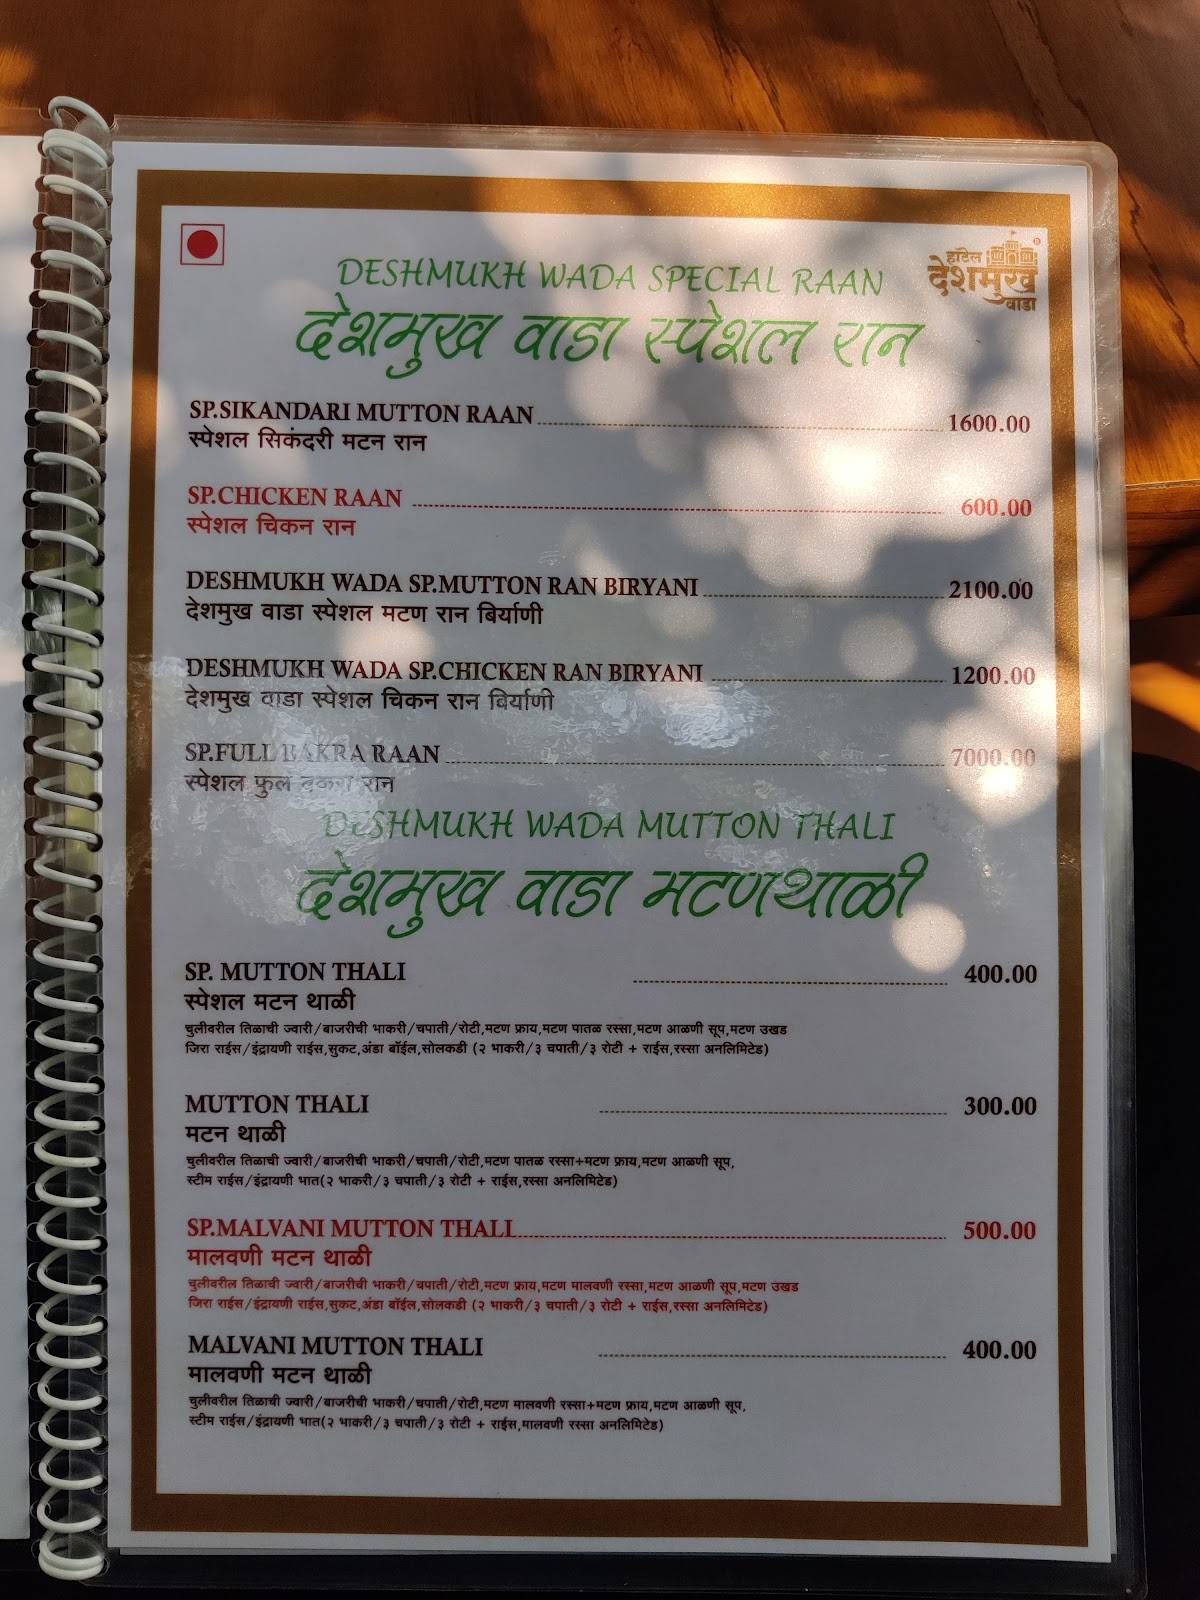 हॉटेल
देशमुख
वाडा
DESHMUKH WADA SPECIAL RAAN
देशमुख वाडा स्पेशल रान
SP.SIKANDARI MUTTON RAAN 1600.00
स्पेशल सिकंदरी मटन रान
SP.CHICKEN RAAN 600.00
स्पेशल चिकन रान
DESHMUKH WADA SP.MUTTON RAN BIRYANI 2100.00
देशमुख वाडा स्पेशल मटण रान बिर्याणी
DESHMUKH WADA SP.CHICKEN RAN BIRYANI 1200.00
देशमुख वाडा स्पेशल चिकन रान बिर्याणी
SP.FULL BAKRA RAAN 7000.00
स्पेशल फुल बकरा रान
DESHMUKH WADA MUTTON THALI
देशमुख वाडा मटणथाळी
SP. MUTTON THALI 400.00
स्पेशल मटन थाळी
चुलीवरील तिळाची ज्वारी/बाजरीची भाकरी/चपाती/रोटी,मटण फ्राय,मटण पातळ रस्सा,मटण आळणी सूप,मटण उखड
जिरा राईस/इंद्रायणी राईस,सुकट,अंडा बॉईल,सोलकडी (२ भाकरी/३ चपाती/३ रोटी + राईस,रस्सा अनलिमिटेड)
MUTTON THALI 300.00
मटन थाळी
चुलीवरील तिळाची ज्वारी/बाजरीची भाकरी/चपाती/रोटी,मटण पातळ रस्सा+मटण फ्राय,मटण आळणी सूप,
स्टीम राईस/इंद्रायणी भात(२ भाकरी/३ चपाती/३ रोटी + राईस,रस्सा अनलिमिटेड)
SP.MALVANI MUTTON THALI 500.00
मालवणी मटन थाळी
चुलीवरील तिळाची ज्वारी/बाजरीची भाकरी/चपाती/रोटी,मटण फ्राय,मटण मालवणी रस्सा,मटण आळणी सूप,मटण उखड
जिरा राईस/इंद्रायणी राईस,सुकट,अंडा बॉईल,सोलकडी (२ भाकरी/३ चपाती/३ रोटी + राईस,रस्सा अनलिमिटेड)
MALVANI MUTTON THALI 400.00
मालवणी मटन थाळी
चुलीवरील तिळाची ज्वारी/बाजरीची भाकरी/चपाती/रोटी,मटण मालवणी रस्सा+मटण फ्राय,मटण आळणी सूप,
स्टीम राईस/इंद्रायणी भात(२ भाकरी/३ चपाती/३ रोटी + राईस,मालवणी रस्सा अनलिमिटेड)